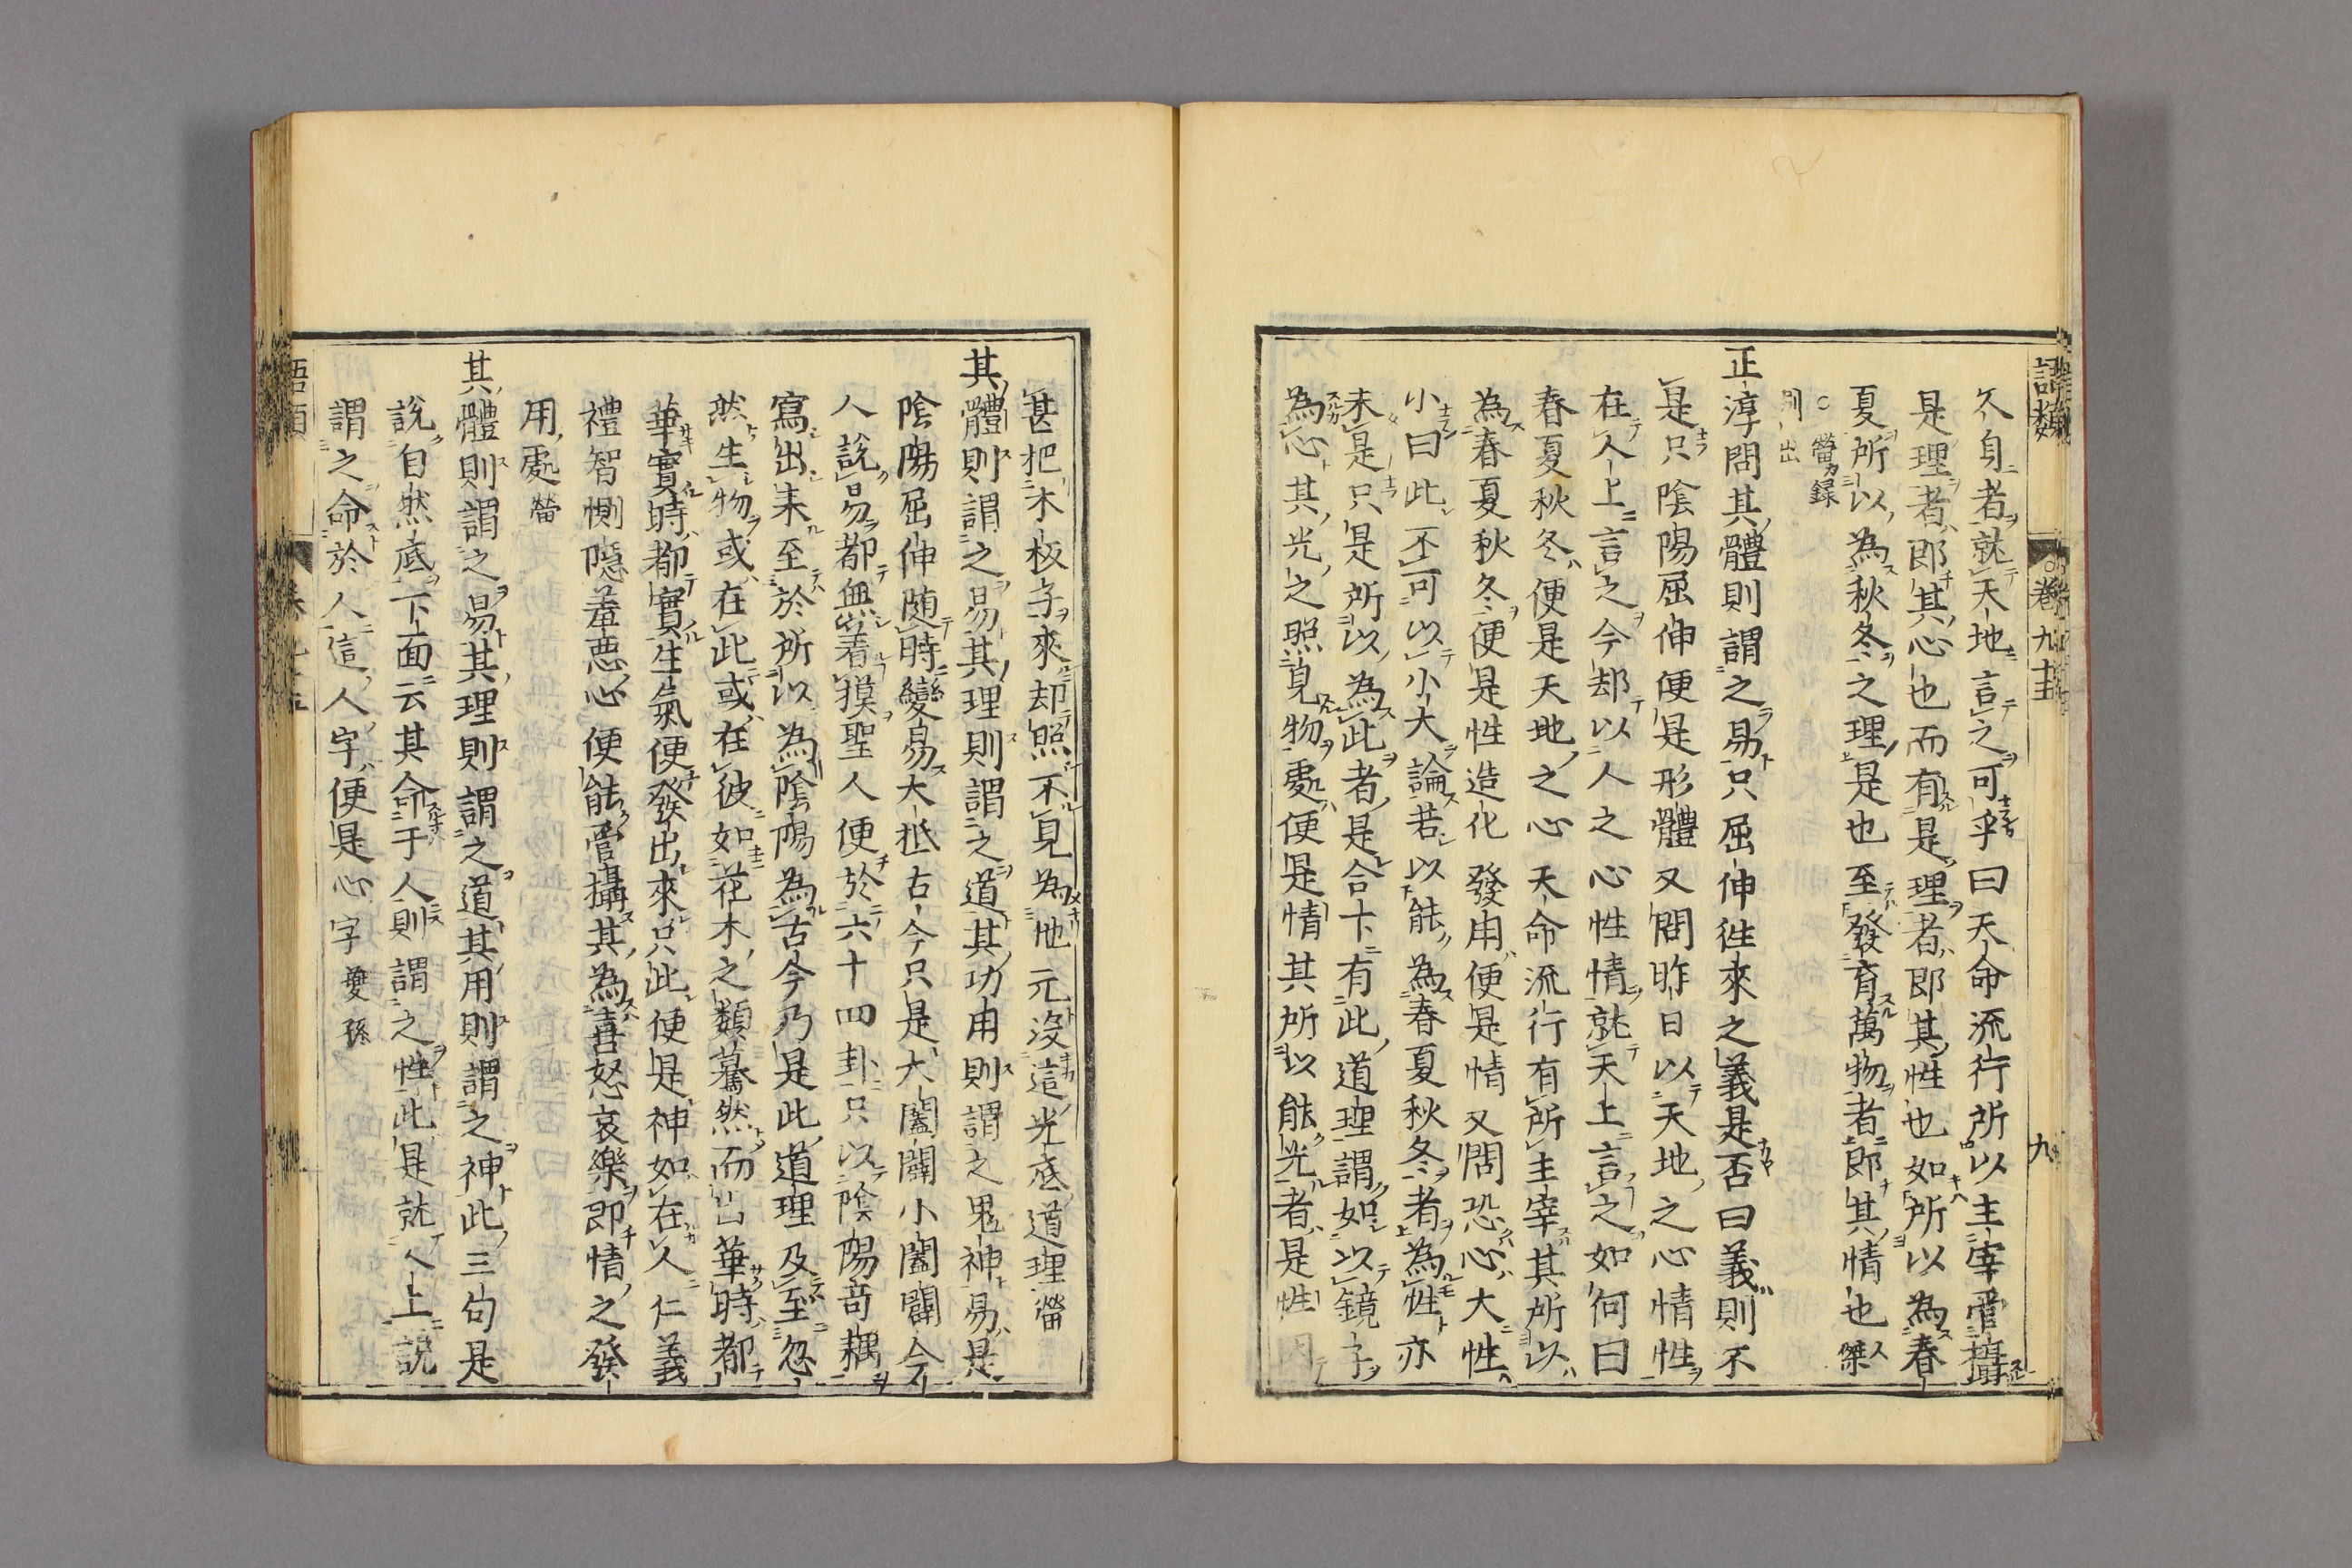 語類 卷九十五 九
久自者就天地言之可乎曰天命流行所以主宰管攝
是理者即其心也而有是理者即其性也如所以為春
夏所以為秋冬之理是也至發育萬物者即其情也傑
○𤇾錄
別出
正淳問其體則謂之易只屈伸徃來之義是否曰義則不
是只陰陽屈伸便是形體又問昨日以天地之心情性
在人上言之今却以人之心性情就天上言之如何曰
春夏秋冬便是天地之心天命流行有所主宰其所以
為春夏秋冬便是性造化發用便是情又問恐心大性
小曰此不可以小大論若以能為春夏秋冬者為性亦
未是只是所以為此者是合下有此道理謂如以鏡子
為心其光之照見物處便是情其所以能光者是性
甚把木板子來却照不見為他元沒這光底道理𤇾
其體則謂之易其理則謂之道其功用則謂之鬼神易是
陰陽屈伸随時變易大抵古今只是大闔闢小闔闢今
人說易都無着摸聖人便於六十四卦只以陰陽竒耦
寫出来至於所以為陰陽為古今乃是此道理及至忽
然生物或在此或在彼如花木之類驀然而出華時都
華實時都實生氣便發出來只此便是神如在人仁義
禮智惻隠羞惡心便能管攝其為喜怒哀樂即情之發
用處𤇾
其體則謂之易其理則謂之道其用則謂之神此三句是
說自然底下面云其命于人則謂之性此是就人上說
謂之命於人這人字便是心字夔孫
語類